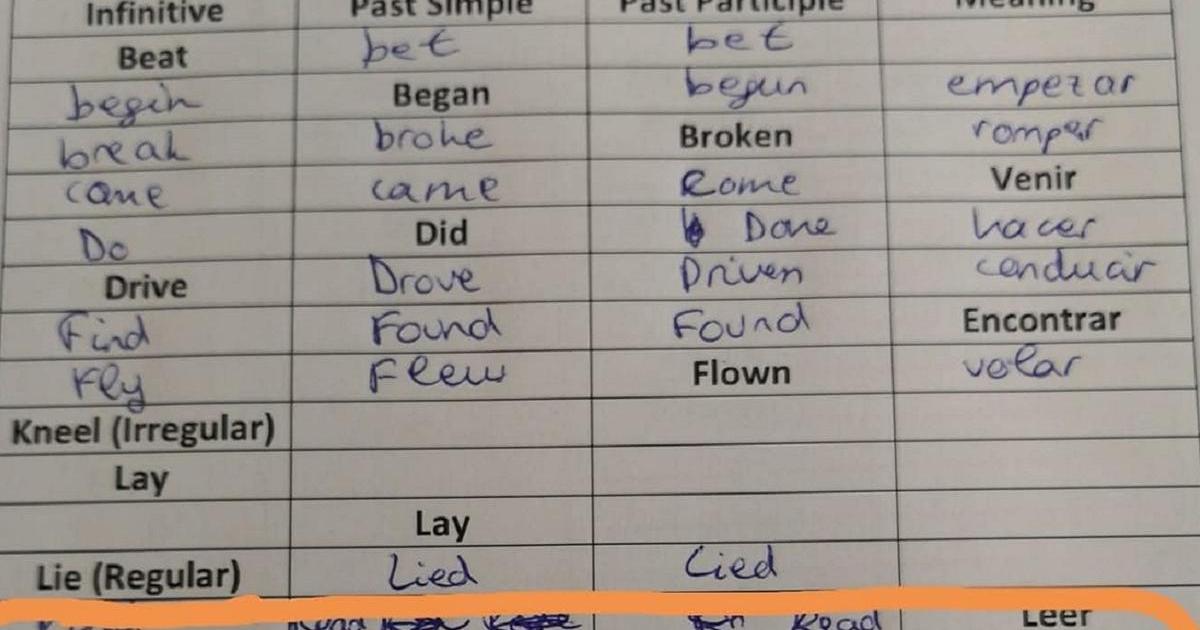 Infinitive Past Simple Past Participle Meaning
Beat bet bet
begin Began begun empezar
break broke Broken romper
come came Come Venir
Do Did Done hacer
Drive Drove Driven conducir
Find Found Found Encontrar
Fly Flew Flown volar
Kneel (Irregular)
Lay
Lay
Lie (Regular) Lied Lied
Leer